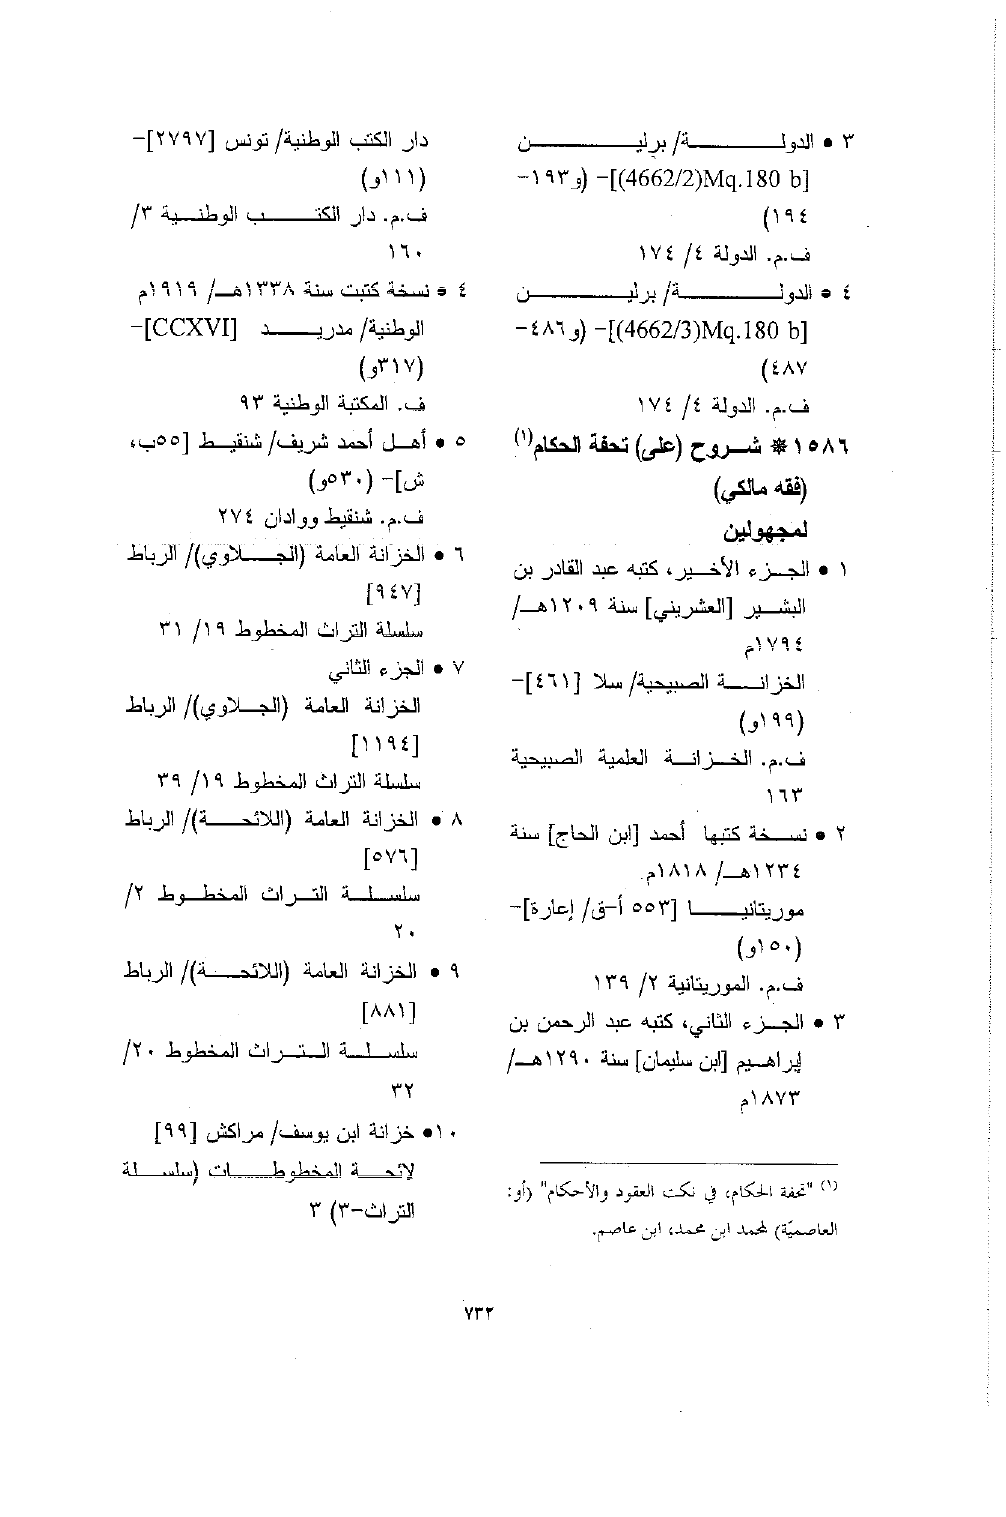 ٣ • الدولــــــة/ برليــــــــن
[(4662/2)Mq.180 b]- (و١٩٣-
١٩٤)
ف.م. الدولة ٤/ ١٧٤
٤ • الدولــــــة/ برليــــــــن
[(4662/3)Mq.180 b]- (و٤٨٦-
٤٨٧)
ف.م. الدولة ٤/ ١٧٤
١٥٨٦ * شـــروح (على) تحفة الحكام(١)
(فقه مالكي)
لمجهولين
١ • الجـــزء الأخـــير، كتبه عبد القادر بن
البشـــير [العشريني] سنة ١٢٠٩هـ/
١٧٩٤م
الخزانـــة الصبيحية/ سلا [٤٦١]-
(١٩٩و)
ف.م. الخـــزانـــة العلمية الصبيحية
١٦٣
٢ • نســـخة كتبها أحمد [ابن الحاج] سنة
١٢٣٤هـ/ ١٨١٨م.
موريتانيـــا [٥٥٣ أ-ق/ إعارة]-
(١٥٠و)
ف.م. الموريتانية ٢/ ١٣٩
٣ • الجـــزء الثاني، كتبه عبد الرحمن بن
إبراهـــيم [ابن سليمان] سنة ١٢٩٠هـ/
١٨٧٣م
دار الكتب الوطنية/ تونس [٢٧٩٧]-
(١١١و)
ف.م. دار الكتـــب الوطنـــية ٣/
١٦٠
٤ • نسخة كتبت سنة ١٣٣٨هـ/ ١٩١٩م
الوطنية/ مدريـــد [CCXVI]-
(٣١٧و)
ف. المكتبة الوطنية ٩٣
٥ • أهـــل أحمد شريف/ شنقيـــط [٥٥ب،
ش]- (٥٣٠و)
ف.م. شنقيط ووادان ٢٧٤
٦ • الخزانة العامة (الجـــلاوي)/ الرباط
[٩٤٧]
سلسلة التراث المخطوط ١٩/ ٣١
٧ • الجزء الثاني
الخزانة العامة (الجـــلاوي)/ الرباط
[١١٩٤]
سلسلة التراث المخطوط ١٩/ ٣٩
٨ • الخزانة العامة (اللائحـــة)/ الرباط
[٥٧٦]
سلســـلة التـــراث المخطـــوط ٢/
٢٠
٩ • الخزانة العامة (اللائحـــة)/ الرباط
[٨٨١]
سلســـلة التـــراث المخطوط ٢٠/
٣٢
١٠• خزانة ابن يوسف/ مراكش [٩٩]
لائحـــة المخطوطـــات (سلســـلة
التراث-٣) ٣
(١) "تحفة الحكام، في نكت العقود والأحكام" (أو:
العاصميّة) لمحمد ابن محمد، ابن عاصم.
٧٣٢